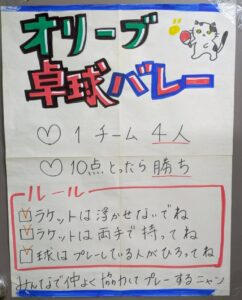 オリーブ
卓球バレー
♡ 1チーム 4人
♡ 10点とったら勝ち
ルール
☑ ラケットは浮かせないでね
☑ ラケットは両手で持ってね
☑ 球はプレーしている人がひろってね
みんなで仲よく協力してプレーするニャン